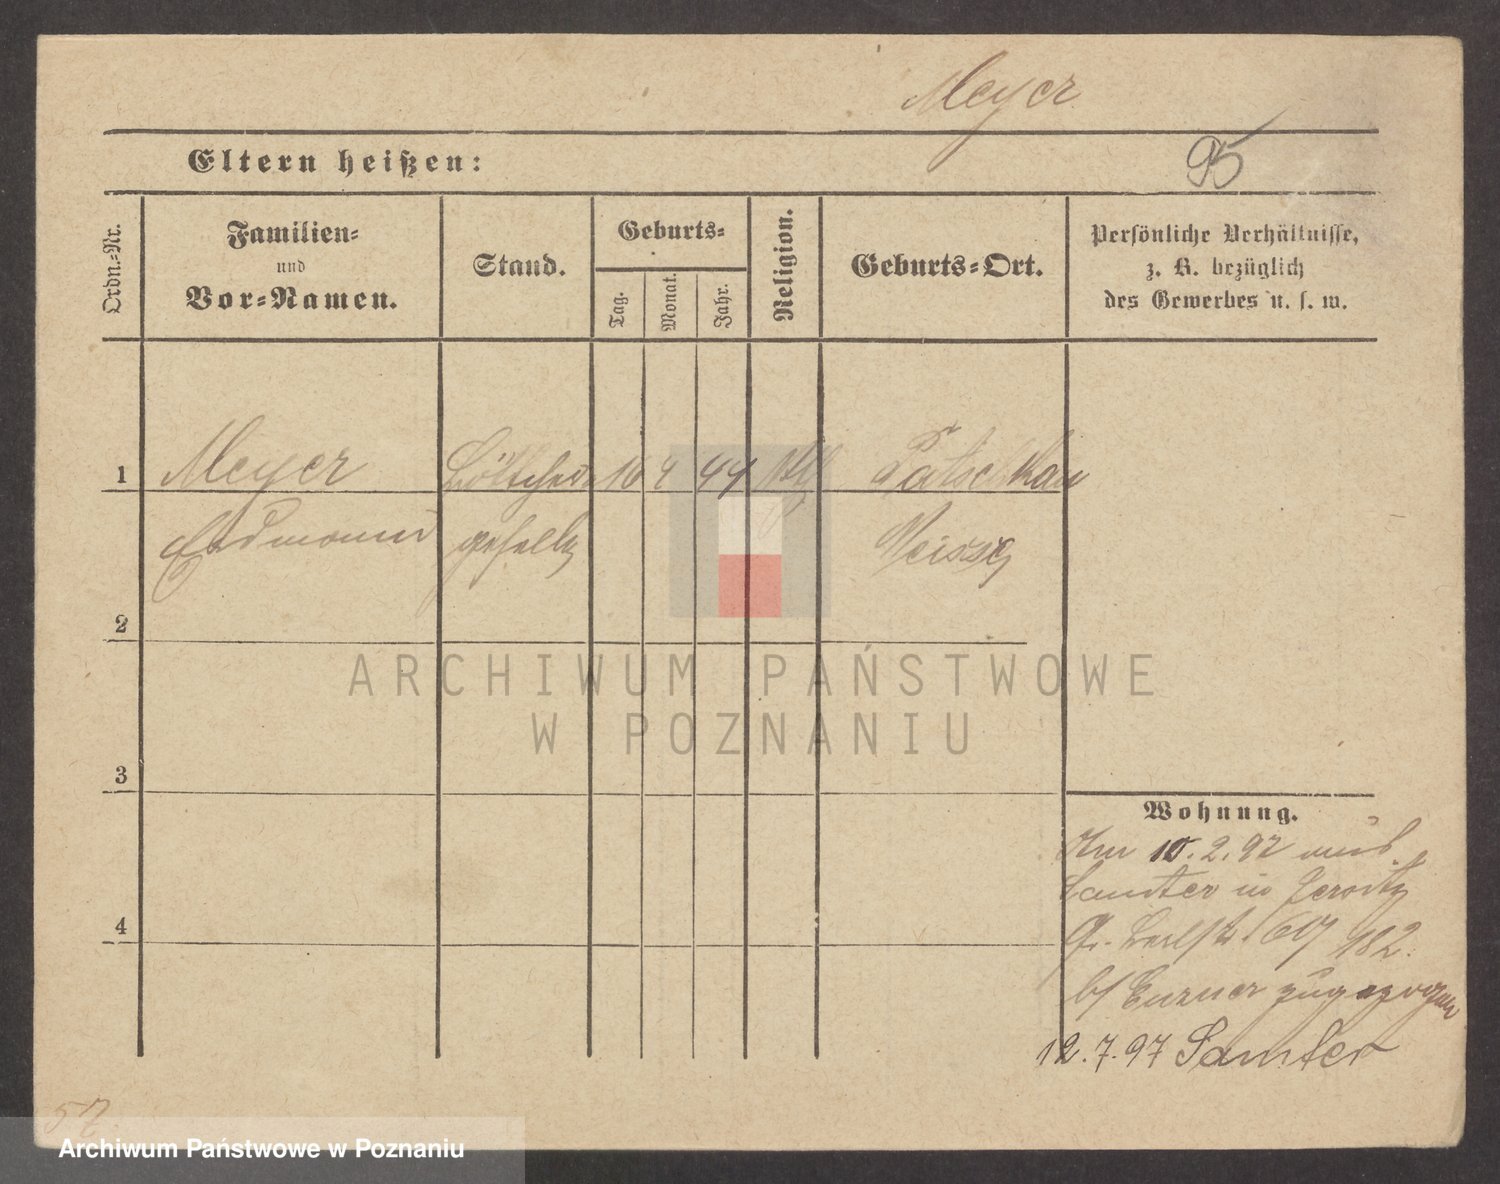 Meyer
95
Eltern heißen:
Ordn.-Nr.
Familien-
und
Vor-Namen.
Stand.
Geburts-
Tag.
Monat.
Jahr.
Religion.
Geburts-Ort.
Persönliche Verhältnisse,
z. B. bezüglich
des Gewerbes u. s. w.
1
Meyer
Böttcher
16 4 44 kth
Patschkau
Edmund
geselle
Neisse
2
ARCHIWUM PAŃSTWOWE
W POZNANIU
3
Wohnung.
Am 10.2.97 aus
Samter in Jersitz
4
Gr. Berlstr. 182.
b/ zugezogen
12.7.97 Samter
57
Archiwum Państwowe w Poznaniu